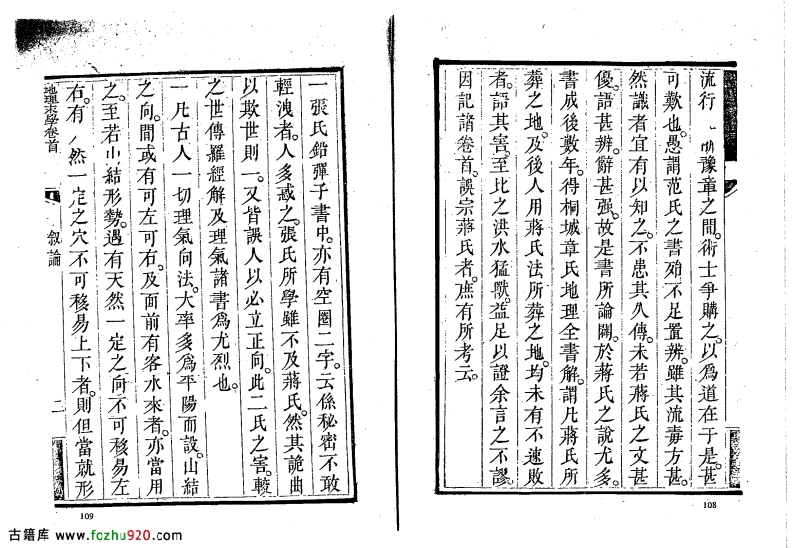 流行 豫章之間。術士爭購之。以為道在于是。甚
可歎也。愚謂范氏之書殆不足置辨。雖其流毒方甚。
然識者宜有以知之。不患其久傳。未若蔣氏之文甚
優。語甚辨。辭甚强。故是書所論闢。於蔣氏之說尤多。
書成後數年。得桐城章氏地理全書解。謂凡蔣氏所
葬之地。及後人用蔣氏法所葬之地。均未有不速敗
者。語其害。至比之洪水猛獸。益足以證余言之不謬。
因記諸卷首。誤宗蔣氏者。庶有所考云。
108
一張氏鉛彈子書中。亦有空圈二字。云係秘密不敢
輕洩者。人多惑之。張氏所學雖不及蔣氏。然其詭曲
以欺世則一。又皆誤人以必立正向。此二氏之害。較
之世傳羅經解及理氣諸書為尤烈也。
一凡古人一切理氣向法。大率多為平陽而設。山結
之向。間或有可左可右。及面前有客水來者。亦當用
之。至若山結形勢。遇有天然一定之向不可移易左
右。有 然一定之穴不可移易上下者。則但當就形
地理末學卷首
敘論
二
109
古籍库 www.fozhu920.com